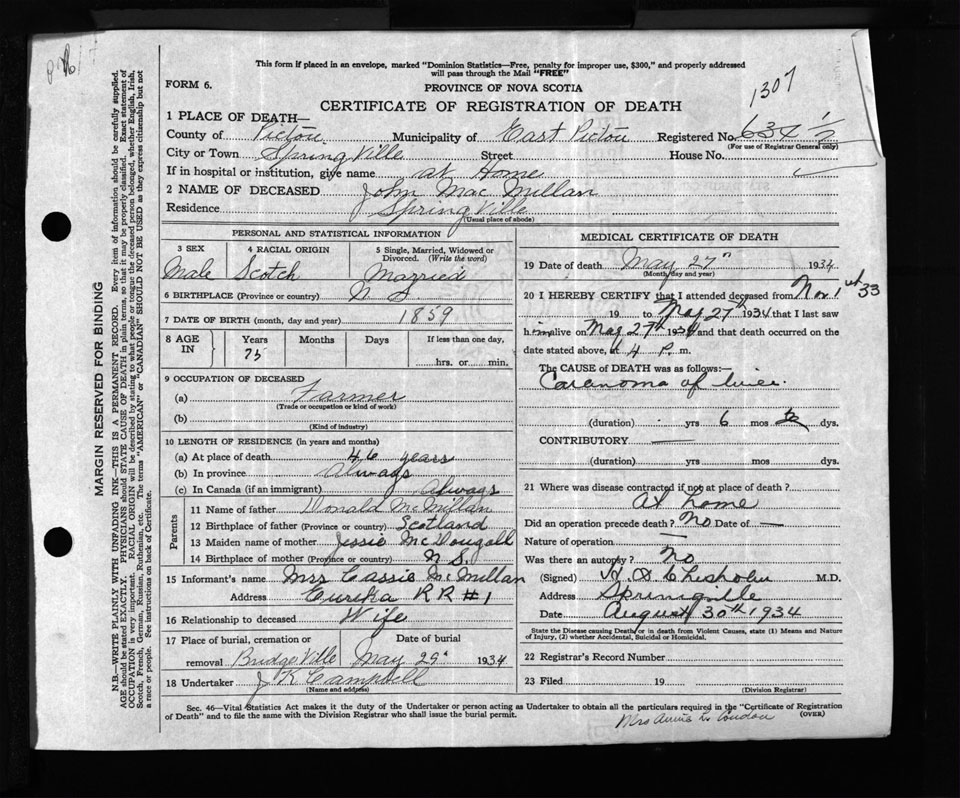 This form if placed in an envelope, marked "Dominion Statistics—Free, penalty for improper use, $300," and properly addressed
will pass through the Mail "FREE"
1307
FORM 6.
PROVINCE OF NOVA SCOTIA
CERTIFICATE OF REGISTRATION OF DEATH
1 PLACE OF DEATH—
County of Pictou Municipality of East Pictou Registered No. 634 1/2
(For use of Registrar General only)
City or Town Spring Ville Street House No.
If in hospital or institution, give name at Home
2 NAME OF DECEASED John Mac Millan
Residence Spring Ville
(Usual place of abode)
PERSONAL AND STATISTICAL INFORMATION
3 SEX 4 RACIAL ORIGIN 5 Single, Married, Widowed or Divorced. (Write the word)
Male Scotch Married
6 BIRTHPLACE (Province or country) N S
7 DATE OF BIRTH (month, day and year) 1859
8 AGE IN Years Months Days If less than one day,
75 hrs. or min.
9 OCCUPATION OF DECEASED
(a) Farmer
(Trade or occupation or kind of work)
(b)
(Kind of industry)
10 LENGTH OF RESIDENCE (in years and months)
(a) At place of death 46 years
(b) In province Always
(c) In Canada (if an immigrant) Always
Parents
11 Name of father Donald McMillan
12 Birthplace of father (Province or country) Scotland
13 Maiden name of mother Jessie McDougall
14 Birthplace of mother (Province or country) N S.
15 Informant's name Mrs Cassie McMillan
Address Eureka RR #1
16 Relationship to deceased Wife
17 Place of burial, cremation or removal Date of burial
Bridge Ville May 29 1934
18 Undertaker J K Campbell
(Name and address)
MEDICAL CERTIFICATE OF DEATH
19 Date of death May 27th 1934
(Month, day and year)
20 I HEREBY CERTIFY that I attended deceased from Nov 1st 33
19 to May 27th 1934 that I last saw
him alive on May 27th 1934 and that death occurred on the
date stated above, at 4 P. m.
The CAUSE of DEATH was as follows:—
Carcnoma of liver.
(duration) yrs 6 mos dys.
CONTRIBUTORY —
(duration) yrs mos dys.
21 Where was disease contracted if not at place of death?
At home
Did an operation precede death? No Date of —
Nature of operation —
Was there an autopsy? No
(Signed) Chisholm M.D.
Address Springville
Date August 30th 1934
State the Disease causing Death, or in death from Violent Causes, state (1) Means and Nature
of Injury, (2) whether Accidental, Suicidal or Homicidal.
22 Registrar's Record Number
23 Filed 19
(Division Registrar)
Sec. 46—Vital Statistics Act makes it the duty of the Undertaker or person acting as Undertaker to obtain all the particulars required in the "Certificate of Registration
of Death" and to file the same with the Division Registrar who shall issue the burial permit.
(OVER)
Mrs Annie
MARGIN RESERVED FOR BINDING
N.B.—WRITE PLAINLY WITH UNFADING INK—THIS IS A PERMANENT RECORD. Every item of information should be carefully supplied.
AGE should be stated EXACTLY. PHYSICIANS should STATE CAUSE OF DEATH in plain terms, so that it may be properly classified. Exact statement of
OCCUPATION is very important. RACIAL ORIGIN will be described by stating to what people or tongue the deceased person belonged, whether English, Irish,
Scotch, French, German, Russian, Ruthenian, etc. The terms "AMERICAN" or "CANADIAN" SHOULD NOT BE USED as they express citizenship but not
a race or people. See instructions on back of Certificate.